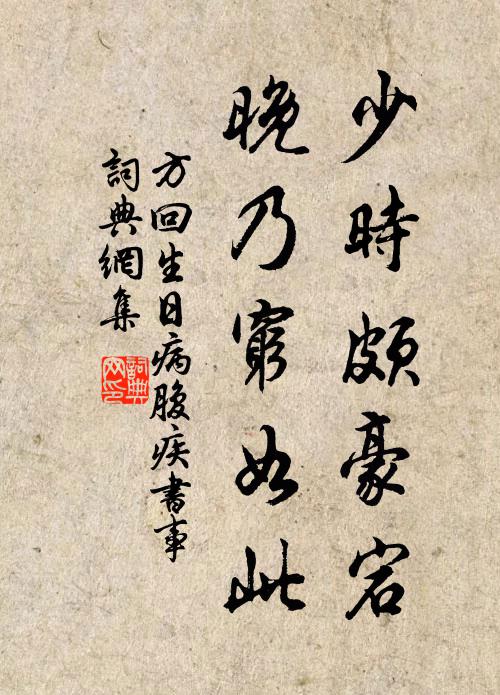 少時頗豪宕
晚乃窮如此
方回生日病腹疾書事
詞典網集
詞典
网印